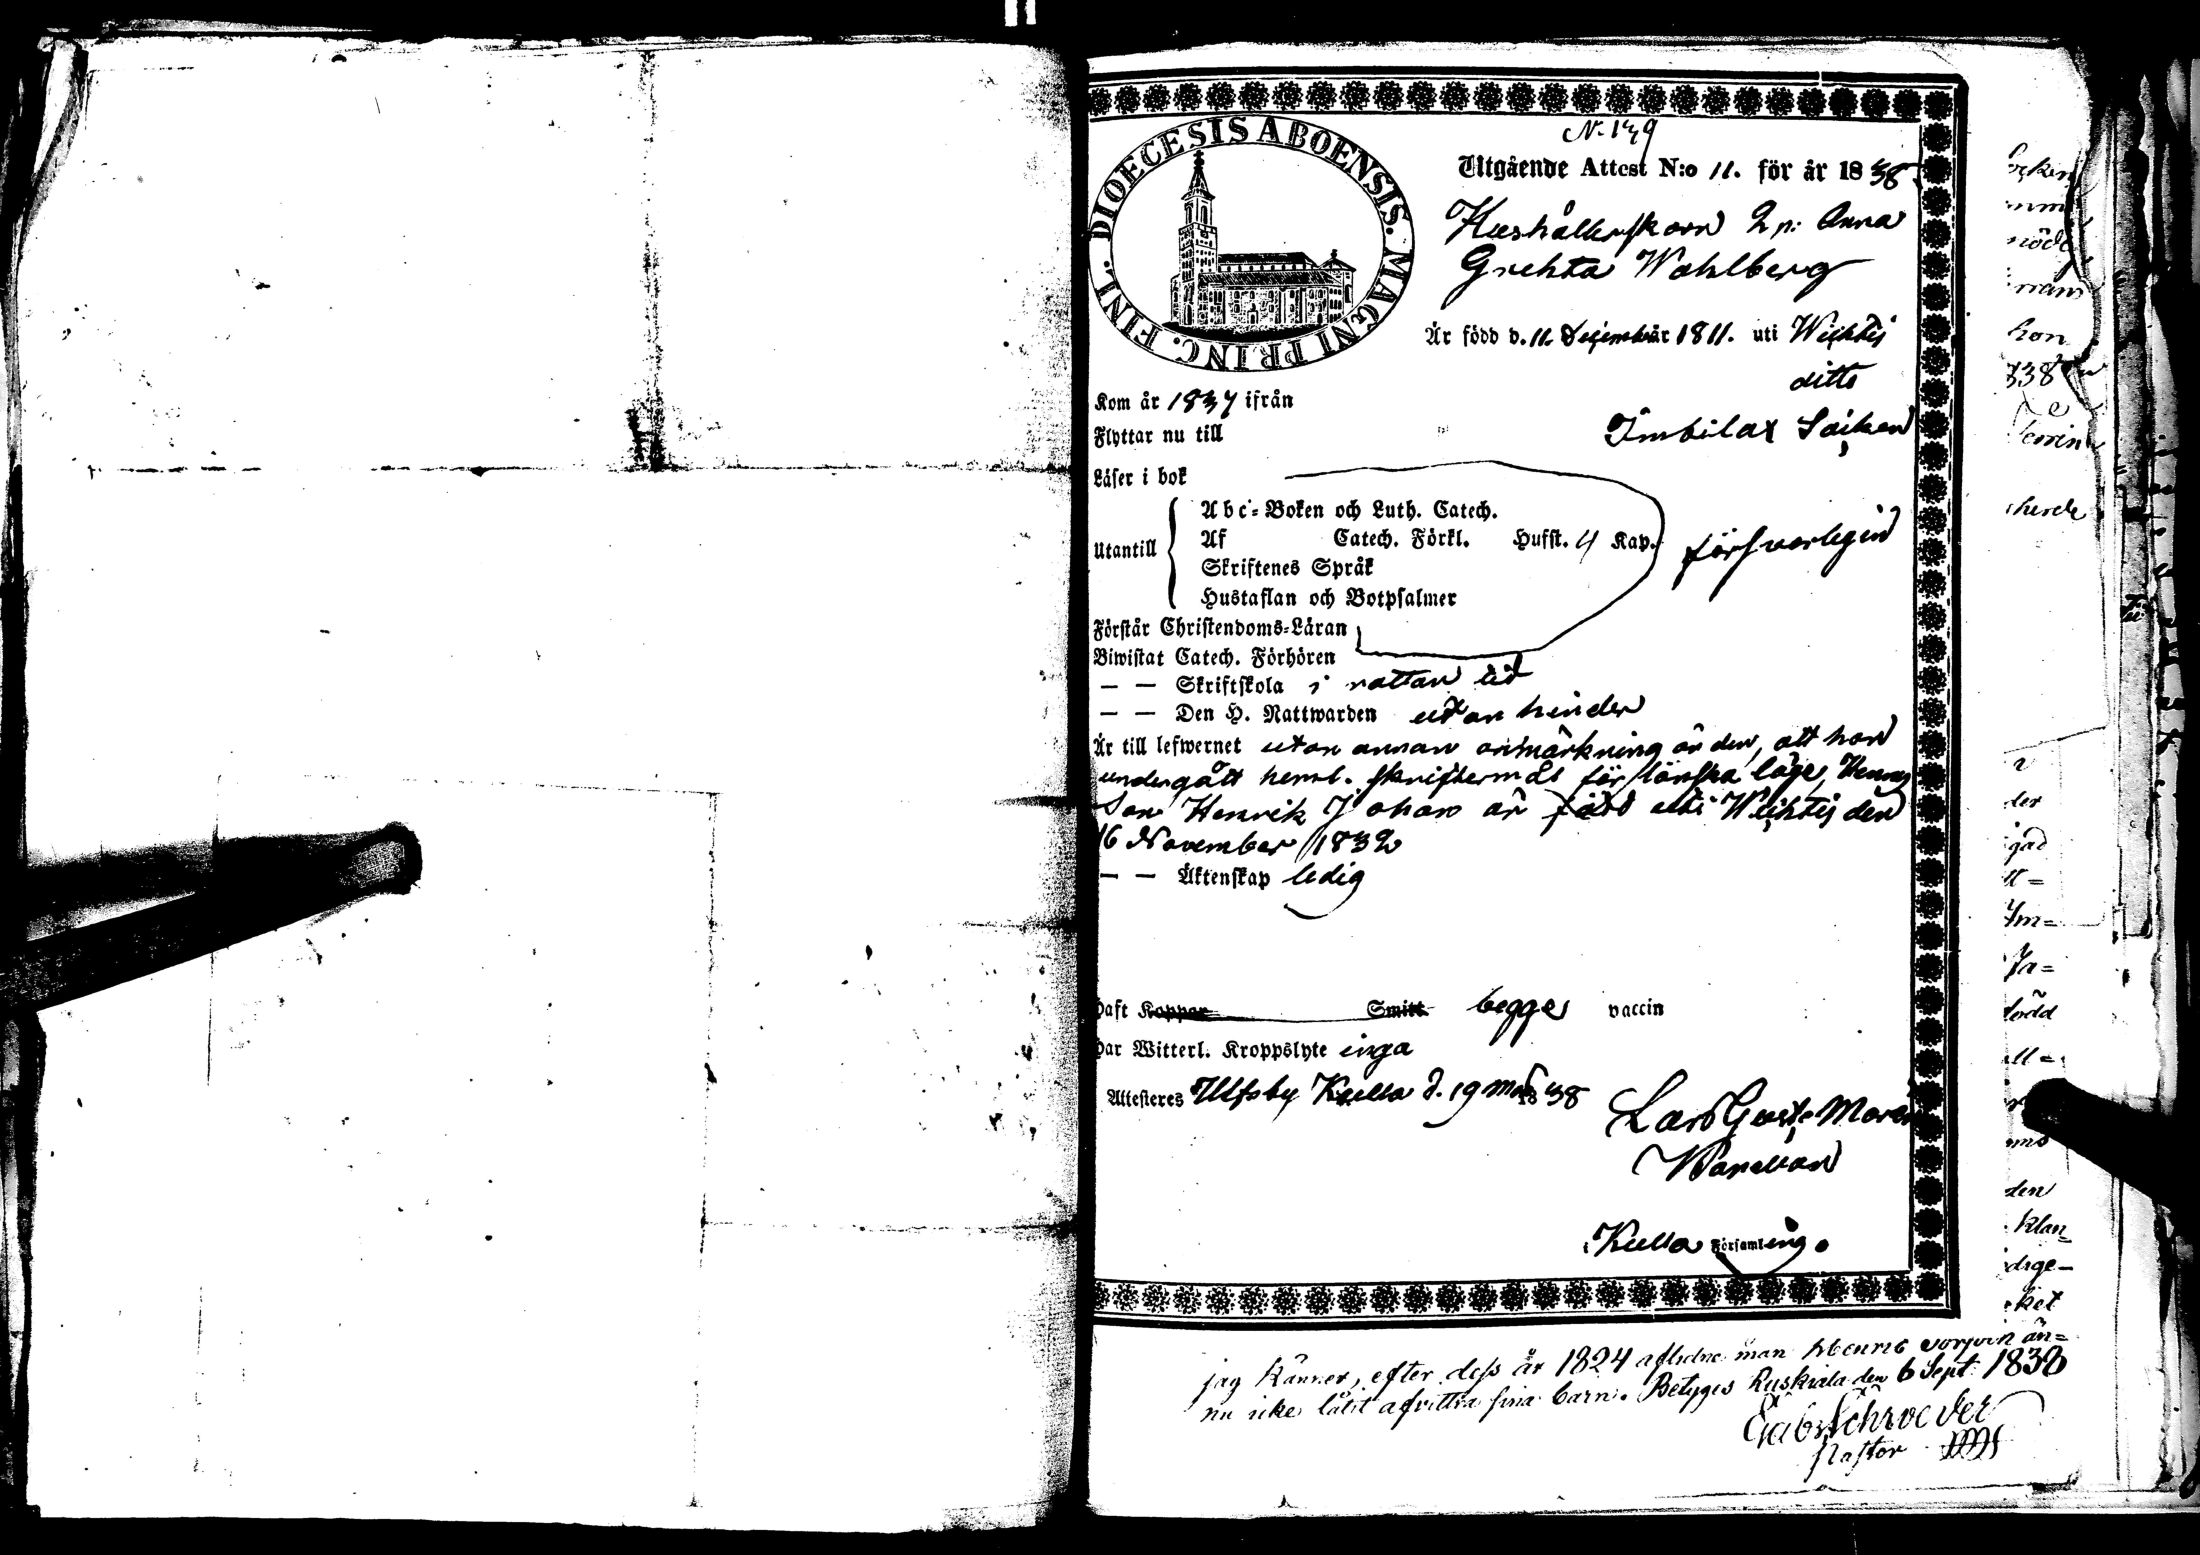 DIOECESIS ABOENSIS. MAGNI PRINC. FINL.
N. 139
Utgående Attest N:o 11. för år 1838.
Hushållerskan Anna
Gretha Wahlberg
Är född d. 11 December 1811. uti Wichtis
Kom år 1837 ifrån ditto
Flyttar nu till Imbilax Socken
Läser i bok
Utantill
Abc-Boken och Luth. Catech.
Af Catech. Förkl. Husst. 4 Kap.
Skriftenes Språk
Hustaflan och Botpsalmer
försvarligen
Förstår Christendoms-Läran
Biwistat Catech. Förhören
— — Skriftskola i rattan tid
— — Den H. Nattwarden utan hinder
Är till lefwernet utan annan anmärkning än den, att hon
undergått heml. skriftermål för lönska läge, Hennes
Son Henrik Johan är född uti Wichtis den
16 November 1832
— — Äktenskap ledig
Haft Koppor Smitt begge vaccin
Har Witterl. Kroppslyte inga
Attesteres Ulfsby Kulla d. 19 Maj 1838
Lars Gust. Moren
i Kulla Församling.
jag känner, efter dess år 1824 aflidne man Henric än=
nu icke låtit afvittra sina barn. Betygas Ruskiala den 6 Sept. 1838
Gab. Schroeder
Pastor
hon
338
der
Ym=
Ja=
född
den
klan
dige=
ket